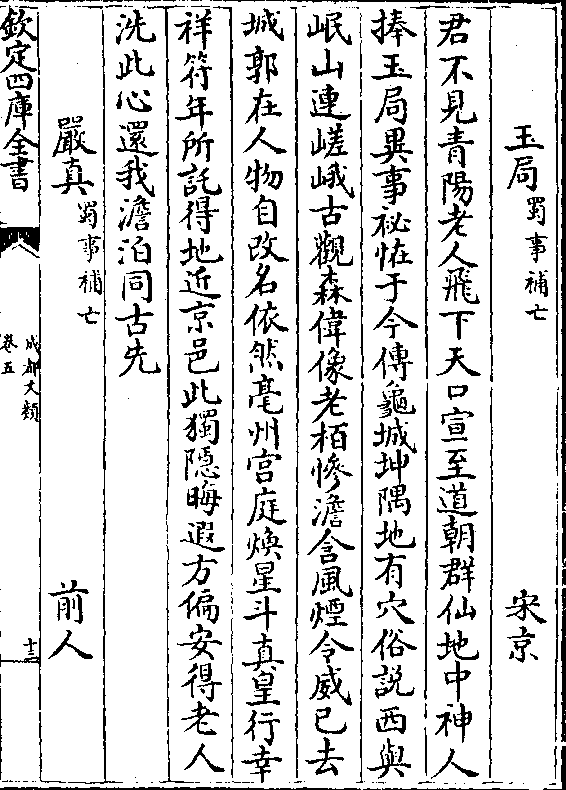 玉局蜀事補亡　宋京
君不見青陽老人飛下天口宣至道朝群仙地中神人
捧玉局異事祕怪于今傳龜城坤隅地有穴俗説西與
岷山連嵯峨古觀森偉像老栢慘澹含風煙令威已去
城郭在人物自改名依然亳州宫庭煥星斗真皇行幸
祥符年所託得地近京邑此獨隱晦遐方偏安得老人
洗此心還我澹泊同古先
嚴真蜀事補亡　前人
欽定四庫全書
成都文類
卷五
十三